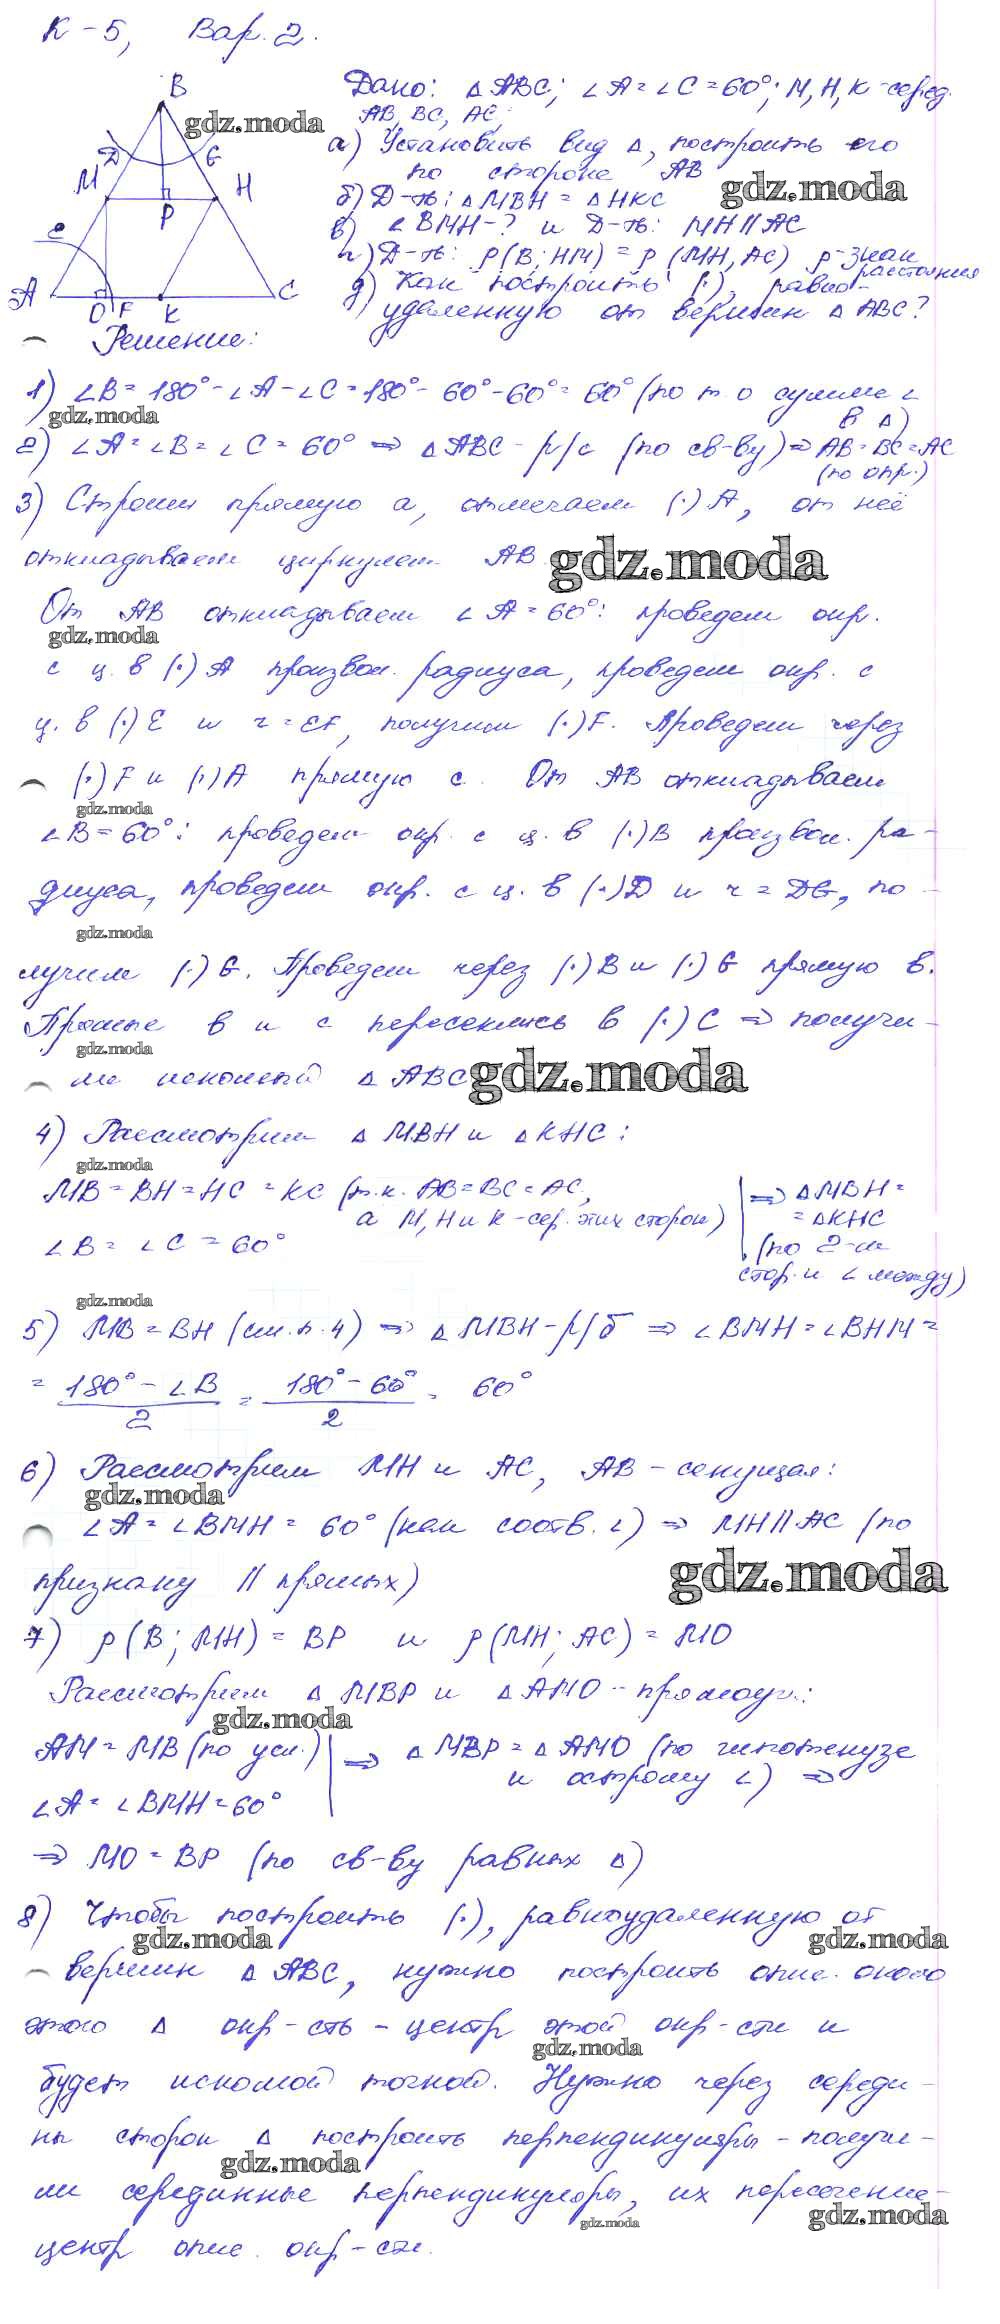 К-5, Вар. 2.
B
gdz.moda
D G
M H
P
E
A O F K C
Дано: △ABC; ∠A=∠C=60°; M, H, K-серед.
AB, BC, AC;
а) Установить вид △, построить его
по стороне AB
gdz.moda
б) Д-ть: △MBH = △HKC
в) ∠BMH-? и Д-ть: MH||AC
г) Д-ть: ρ(B; HM) = ρ(MH, AC) ρ-знак
расстояния
д) Как построить (·), равно-
удаленную от вершин △ABC?
Решение:
1) ∠B = 180° - ∠A - ∠C = 180° - 60° - 60° = 60° (по т. о сумме ∠
в △)
gdz.moda
2) ∠A = ∠B = ∠C = 60° ⇒ △ABC - р/с (по св-ву) ⇒ AB = BC = AC
(по опр.)
3) Строим прямую a, отмечаем (·) A, от неё
откладываем циркулем AB.
gdz.moda
От AB откладываем ∠A = 60°: проведем окр.
gdz.moda
с ц. в (·) A произвол. радиуса, проведем окр. с
ц. в (·) E и r = EF, получим (·) F. Проведем через
(·) F и (·) A прямую c. От AB откладываем
gdz.moda
∠B = 60°: проведем окр. с ц. в (·) B произвол. ра-
диуса, проведем окр. с ц. в (·) D и r = DG, по-
gdz.moda
лучим (·) G. Проведем через (·) B и (·) G прямую в.
Прямые в и с пересеклись в (·) C ⇒ получи-
gdz.moda
ли искомый △ ABC
gdz.moda
4) Рассмотрим △ MBH и △ KHC:
gdz.moda
MB = BH = HC = KC (т.к. AB = BC = AC,
а M, H и K - сер. этих сторон)
∠B = ∠C = 60°
⇒ △MBH =
= △KHC
(по 2-м
стор. и ∠ между)
gdz.moda
5) MB = BH (см. п. 4) ⇒ △ MBH - р/б ⇒ ∠BMH = ∠BHM =
= (180° - ∠B)/2 = (180° - 60°)/2 = 60°
6) Рассмотрим MH и AC, AB - секущая:
gdz.moda
∠A = ∠BMH = 60° (как соотв. ∠) ⇒ MH || AC (по
признаку || прямых)
gdz.moda
7) ρ(B; MH) = BP и ρ(MH; AC) = MO
Рассмотрим △ MBP и △ AMO - прямоуг.:
gdz.moda
AM = MB (по усл.)
∠A = ∠BMH = 60°
⇒ △ MBP = △ AMO (по гипотенузе
и острому ∠) ⇒
⇒ MO = BP (по св-ву равных △)
8) Чтобы построить (·), равноудаленную от
gdz.moda gdz.moda
вершин △ ABC, нужно построить опис. около
этого △ окр-сть - центр этой окр-сти и
gdz.moda
будет искомой точкой. Нужно через середи-
ны сторон △ построить перпендикуляры - получи-
gdz.moda
ли серединные перпендикуляры, их пересечение-
gdz.moda gdz.moda
центр опис. окр-сти.